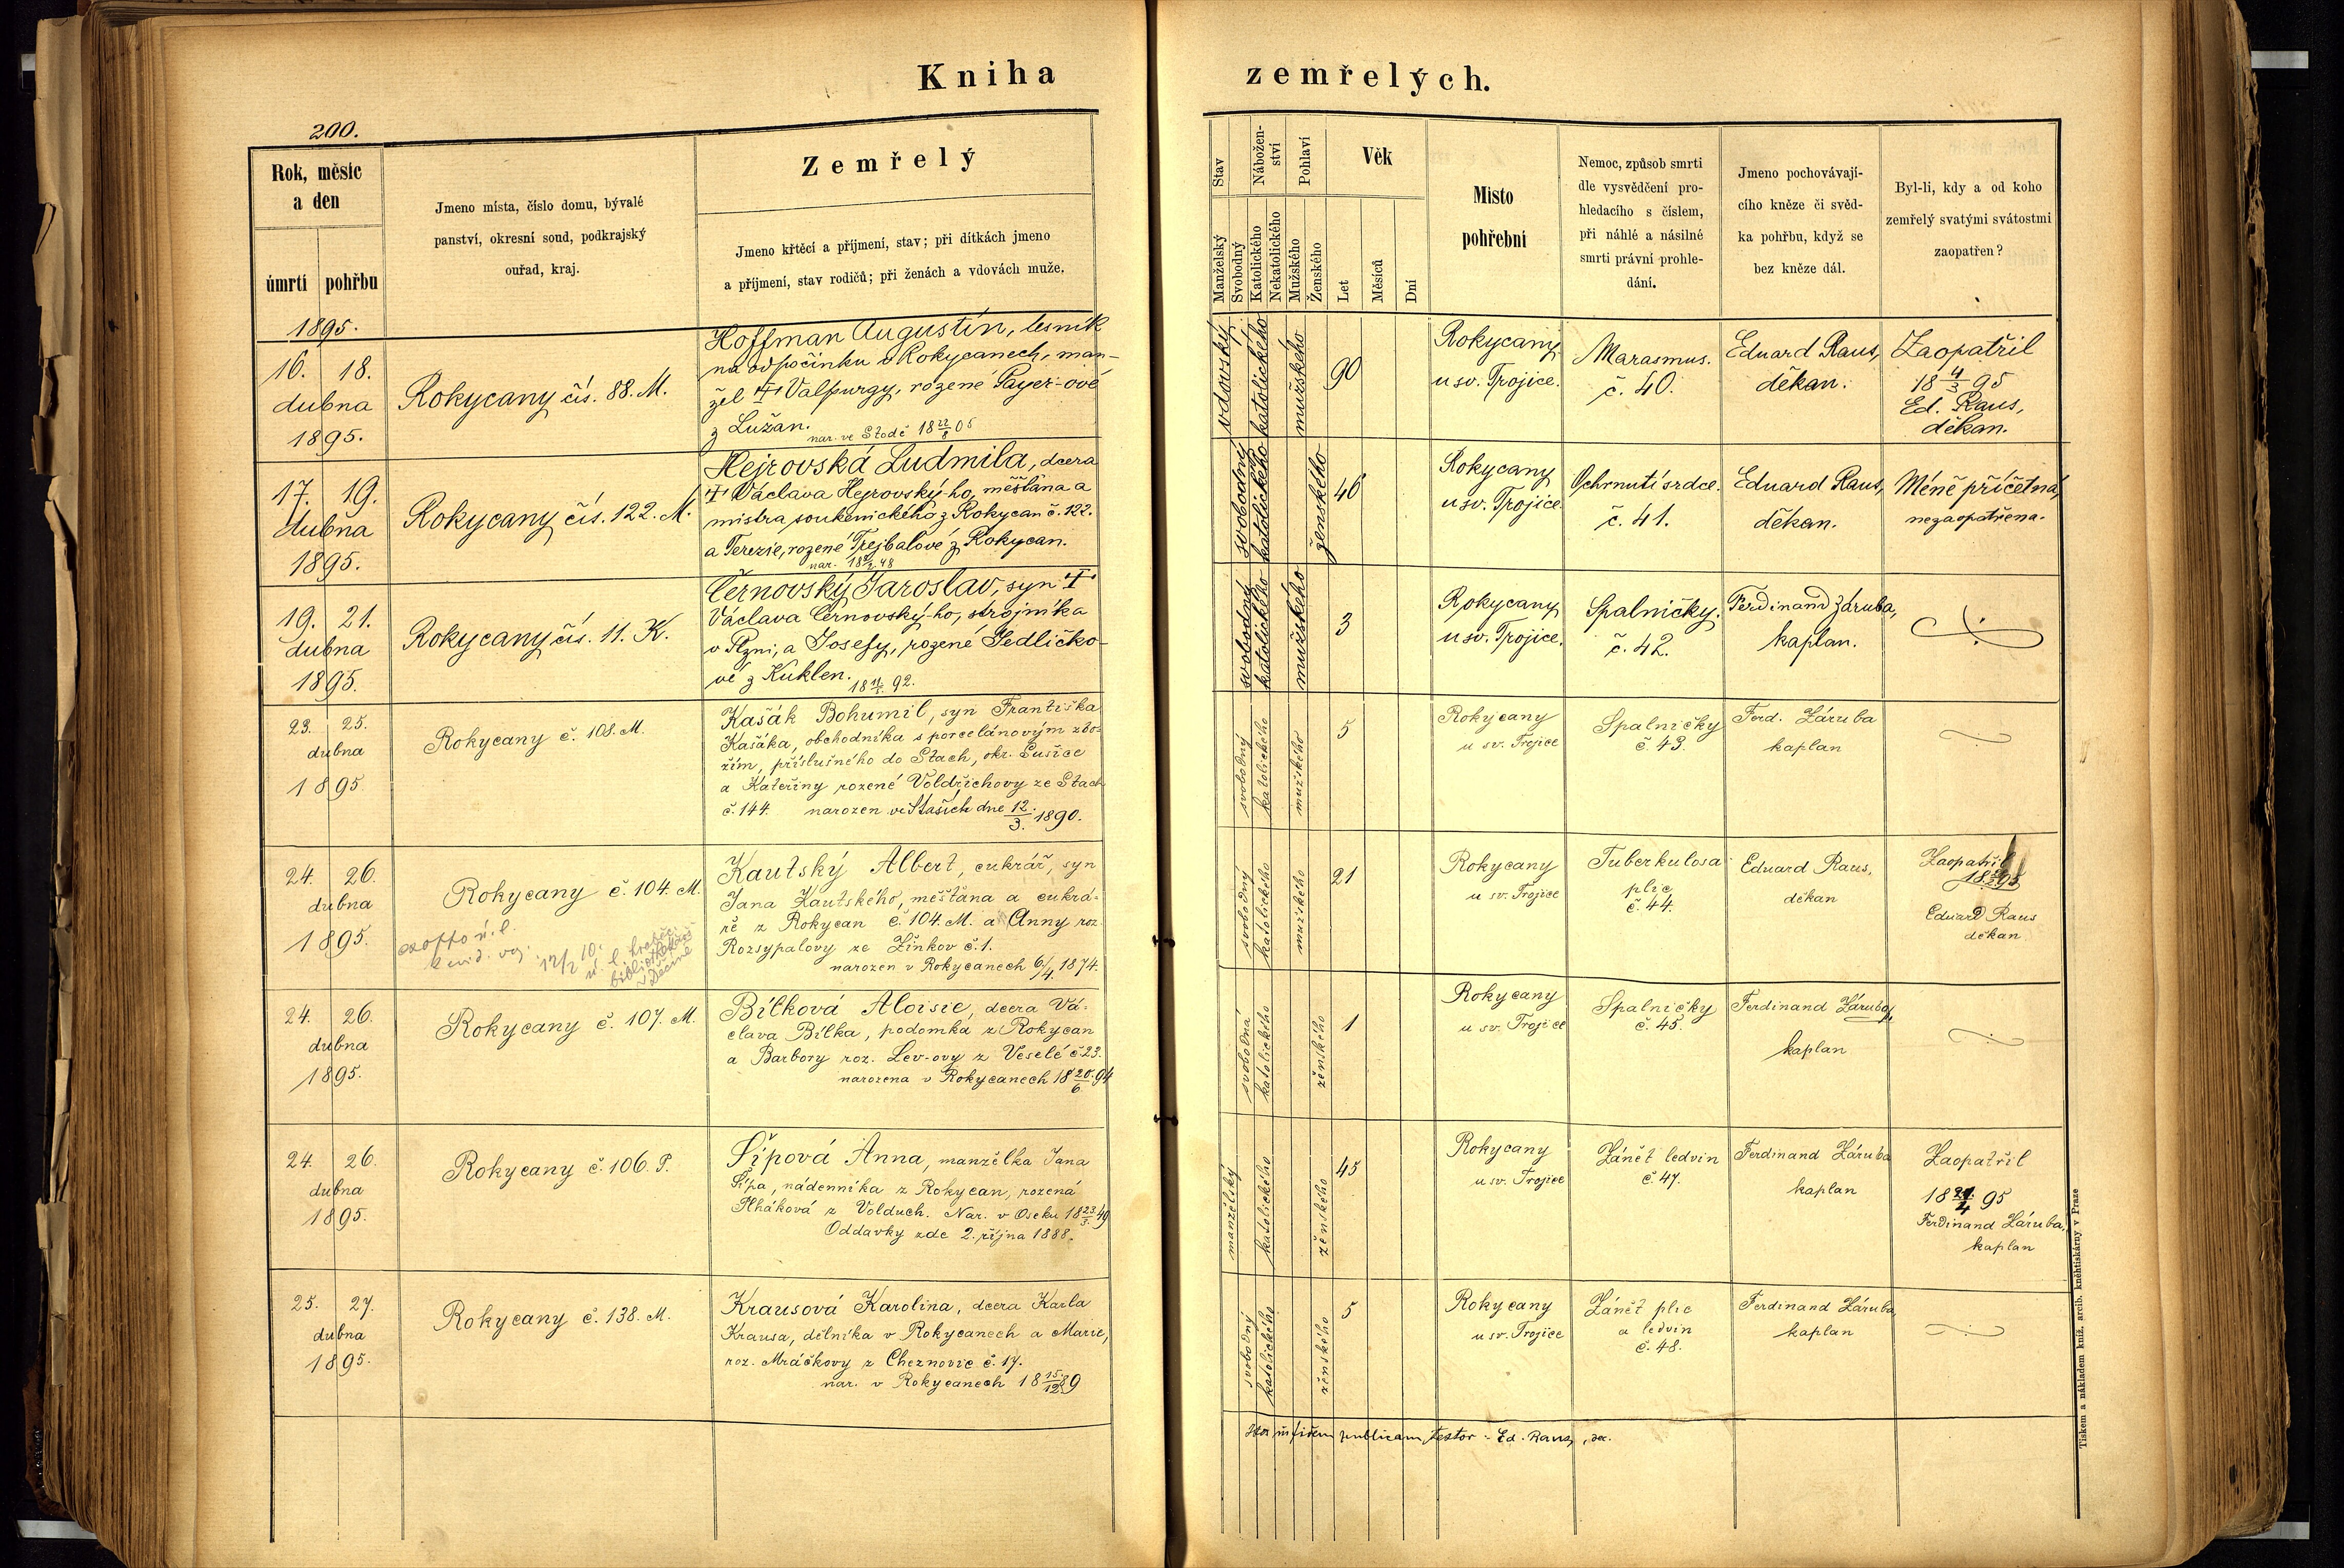 Kniha zemřelých.
200.
Rok, měsíc
a den
úmrtí pohřbu
Jmeno místa, číslo domu, bývalé
panství, okresní soud, podkrajský
ouřad, kraj.
Zemřelý
Jmeno křtěcí a příjmení, stav; při dítkách jmeno
a příjmení, stav rodičů; při ženách a vdovách muže.
Stav
Manželský
Svobodný
Nábožen-
ství
Katolického
Nekatolického
Pohlaví
Mužského
Ženského
Věk
Let
Měsíců
Dní
Místo
pohřební
Nemoc, způsob smrti
dle vysvědčení pro-
hledacího s číslem,
při náhlé a násilné
smrti právní prohle-
dání.
Jmeno pochovávají-
cího kněze či svěd-
ka pohřbu, když se
bez kněze dál.
Byl-li, kdy a od koho
zemřelý svatými svátostmi
zaopatřen?
1895.
16. 18.
dubna
1895.
Rokycany čís. 88. M.
Hoffman Augustín, lesník
na odpočinku v Rokycanech, man-
žel † Valpurgy, rozené Payer-ové
z Lužan.
nar. ve Stodě 18 22/8 05
vdovský
katolického
mužského
90
Rokycany
u sv. Trojice.
Marasmus.
č. 40.
Eduard Raus,
děkan.
Zaopatřil
18 4/3 95
Ed. Raus,
děkan.
17. 19.
dubna
1895.
Rokycany čís. 122. M.
Hejrovská Ludmila, dcera
† Václava Hejrovský-ho, měšťana a
mistra soukenického z Rokycan č. 122.
a Terezie, rozené Trejbalové z Rokycan.
nar. 48
svobodný
katolického
ženského
46
Rokycany
u sv. Trojice
Ochrnutí srdce.
č. 41.
Eduard Raus,
děkan.
Méně příčetná,
nezaopatřena.
19. 21.
dubna
1895.
Rokycany čís. 11. K.
Černovský Jaroslav, syn †
Václava Černovský-ho, strojníka
v Plzni, a Josefy, rozené Jedličko-
vé z Kuklen.
92.
svobodný
katolického
mužského
3
Rokycany
u sv. Trojice.
Spalničky.
č. 42.
Ferdinand Záruba,
kaplan.
23. 25.
dubna
1895
Rokycany č. 108. M.
Kašák Bohumil, syn Františka
Kašáka, obchodníka s porcelánovým zbo-
žím, příslušného do Stach, okr. Sušice
a Kateřiny rozené Voldřichovy ze Stach
č. 144. narozen ve Staších dne 12/3. 1890.
svobodný
katolického
mužského
5
Rokycany
u sv. Trojice
Spalničky
č. 43.
Ferd. Záruba
kaplan
24. 26.
dubna
1895.
Rokycany č. 104. M.
Kautský Albert, cukrář, syn
Jana Kautského, měšťana a cukrá-
ře z Rokycan č. 104. M. a Anny roz.
Rozsypalovy ze Žinkov č. 1.
narozen v Rokycanech 6/4. 1874.
svobodný
katolického
mužského
21
Rokycany
u sv. Trojice
Tuberkulosa
plic
č. 44.
Eduard Raus,
děkan
Zaopatřil
Eduard Raus
děkan
24. 26.
dubna
1895.
Rokycany č. 107. M.
Bílková Aloisie, dcera Vá-
clava Bílka, podomka z Rokycan
a Barbory roz. Lev-ovy z Veselé č. 23.
narozena v Rokycanech 18 20/6. 94
svobodná
katolického
ženského
1
Rokycany
u sv. Trojice
Spalničky
č. 45.
Ferdinand Záruba,
kaplan
24. 26.
dubna
1895.
Rokycany č. 106. P.
Šípová Anna, manželka Jana
Šípa, nádenníka z Rokycan, rozená
Plháková z Volduch. Nar. v Oseku 18 23/3. 49
Oddavky zde 2. října 1888.
manželský
katolického
ženského
45
Rokycany
u sv. Trojice
Zánět ledvin
č. 47.
Ferdinand Záruba
kaplan
Zaopatřil
Ferdinand Záruba,
kaplan
25. 27.
dubna
1895.
Rokycany č. 138. M.
Krausová Karolina, dcera Karla
Krausa, dělníka v Rokycanech a Marie,
roz. Mráčkovy z Cheznovic č. 17.
nar. v Rokycanech 18 15/12. 89
svobodný
katolického
ženského
5
Rokycany
u sv. Trojice
Zánět plic
a ledvin
č. 48.
Ferdinand Záruba,
kaplan
in fidem publicam testor: Ed. Raus, dec.
Tiskem a nákladem kníž. arcib. kněhtiskárny v Praze